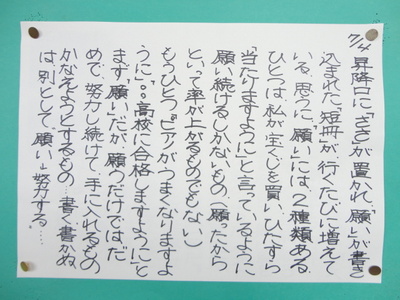 7/4
昇降口に「ささ」が置かれ、「願い」が書き
込まれた「短冊」が行くたびに増えて
いる。思うに「願い」には、2種類ある。
ひとつは、私が宝くじを買い、ひたすら
「当たりますように」と言っているように
願い続けるしかないもの(願ったから
といって率が上がるものでもない)
もうひとつ、「ピアノがうまくなりますよ
うに」「○○高校に合格しますように」と
まず「願い」だが、願うだけではだ
めで、努力し続けて、手に入れるもの
かなえようとするもの…書く、書かぬ
は、別として、「願い→努力する…